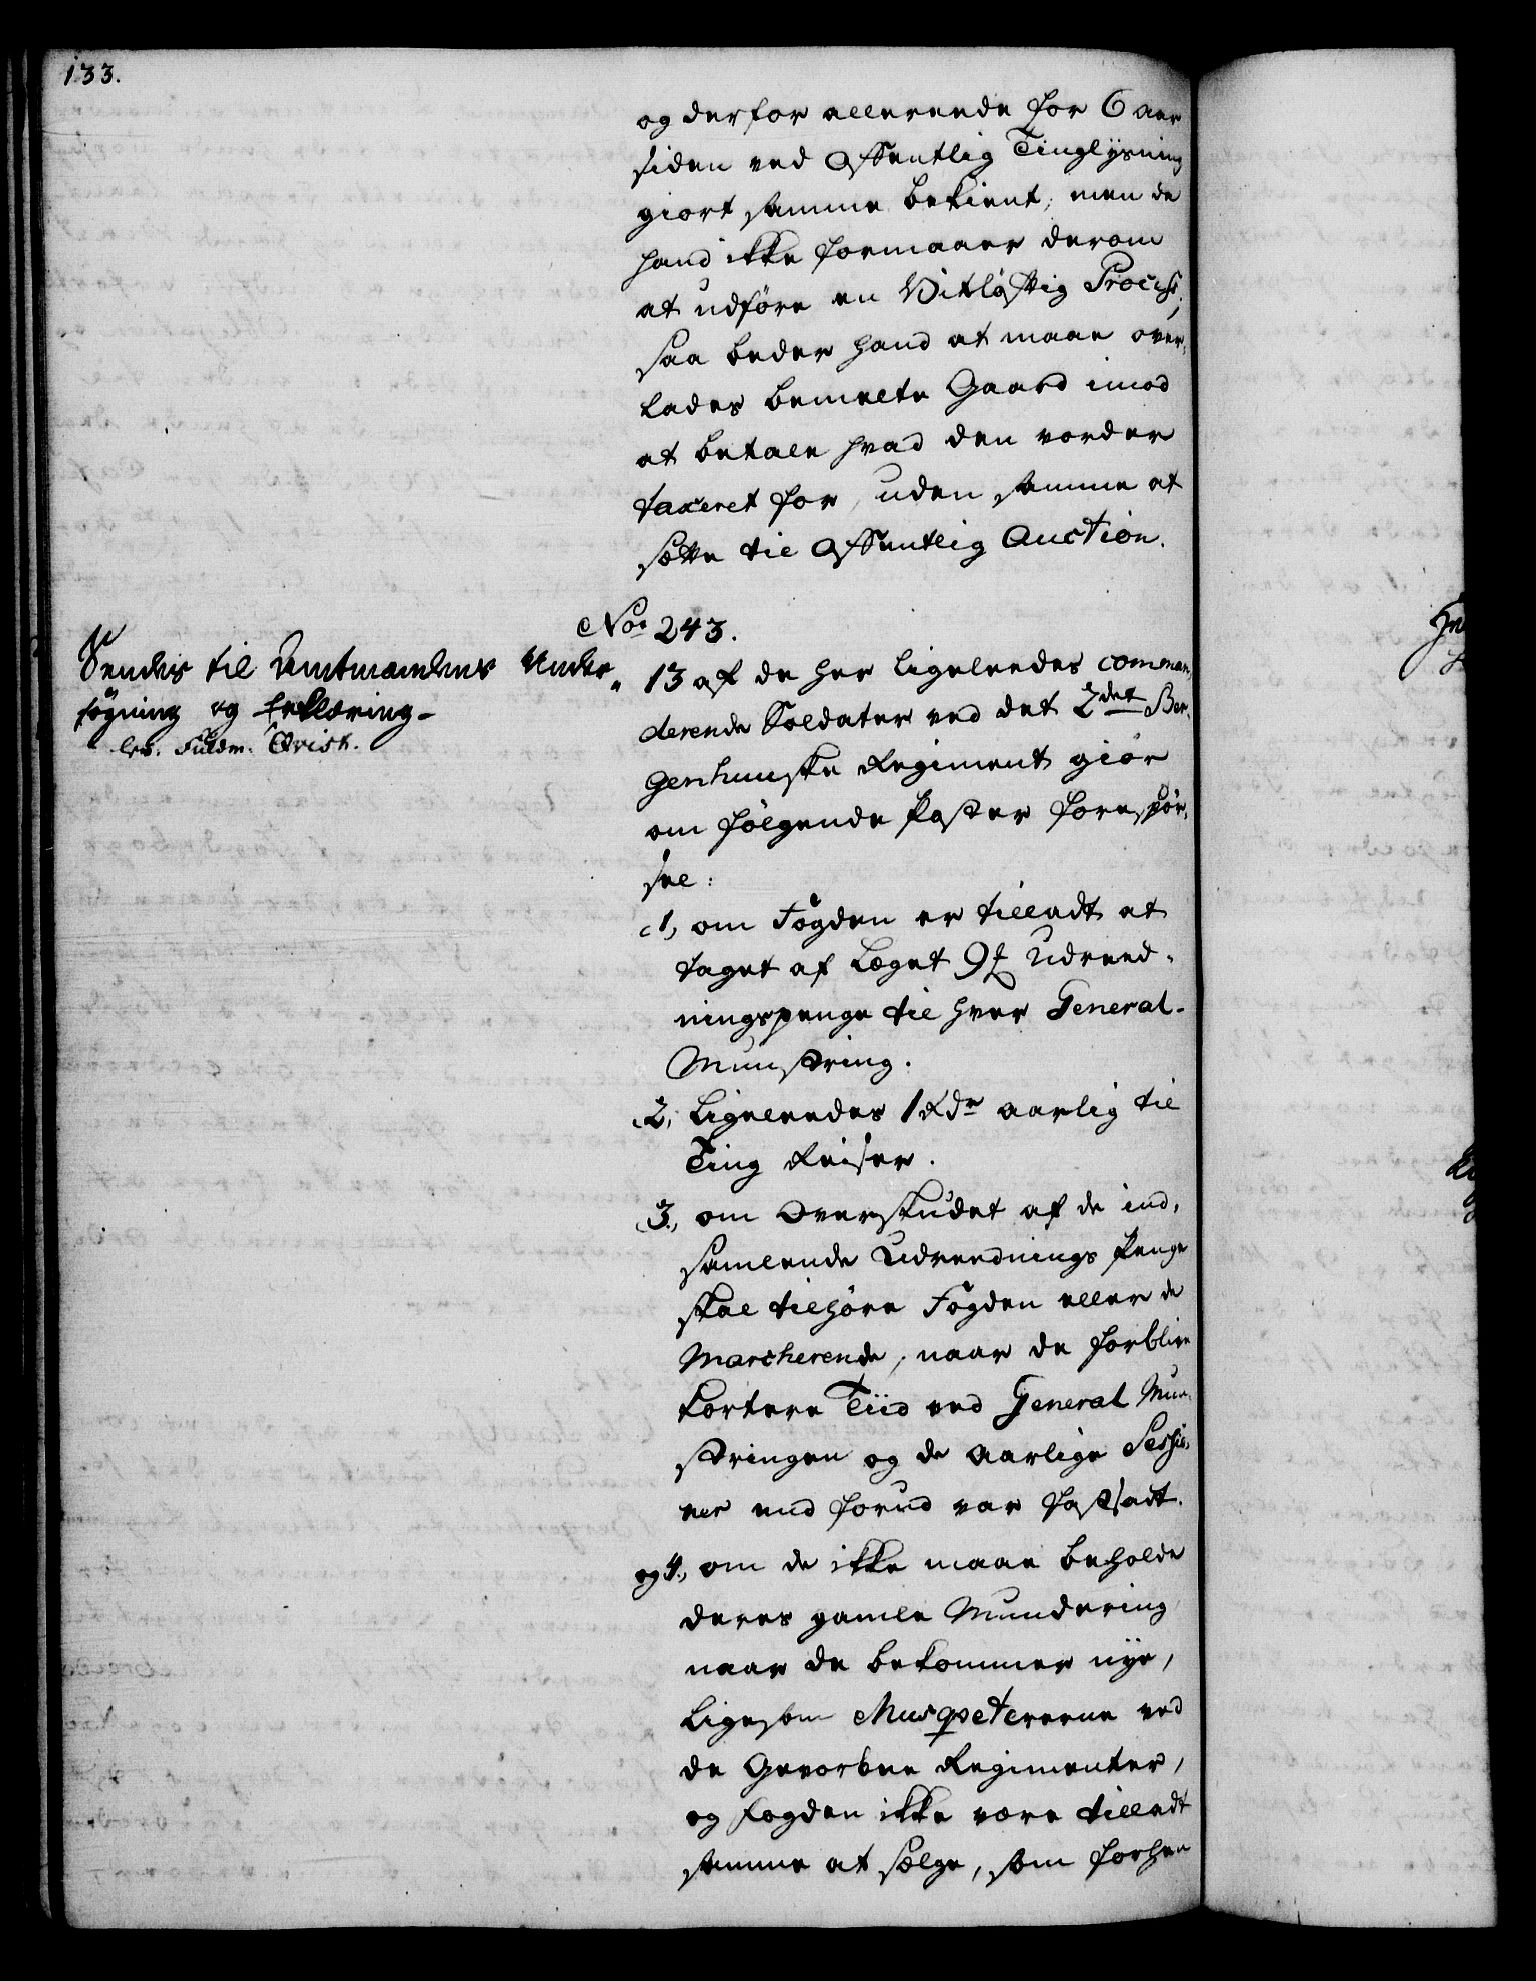 133.
og derfor allereede for 6 aar
siden ved offentlig Tinglysning
giort samme bekient, men da
hand ikke formaaer derom
at udføre en Vitløftig Process,
saa beder hand at maae over,
lades bemelte Gaard imod
at betale hvad den vorder
taxeret for, uden samme at
sætte til offentlig Auction.
No. 243.
Sendes til Amtmandens Under,
søgning og Erklæring.
lev. Fuldm. Qvist.
13 af de her ligeleedes comman,
derende Soldater ved det 2det Ber,
genhuuske Regiment giør
om følgende Poster forespør,
sel:
1, om Fogden er tilladt at
taget af Læget 9 Udreed,
ningspenge til hver General-
Munstring.
2, ligeleedes 1 Rdr aarlig til
Ting Reiser.
3, om Overskudet af de ind,
samlende Udreednings Penge
skal tilhøre Fogden eller de
Marcherende, naar de forblive
kortere Tiid ved General Mun,
stringen og de aarlige Sessio,
ner end forud var fastsadt.
og 4, om de ikke maae beholde
deres gamle Mundering
naar de bekommer nye,
ligesom Musqveterene ved
de Gevorbne Regimenter,
og Fogden ikke være tilladt
samme at sælge, som forhen